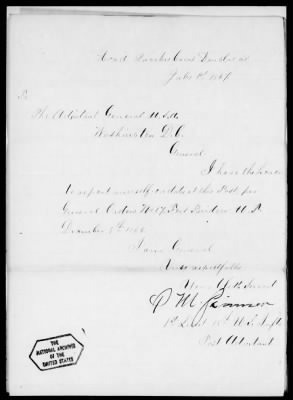 Head Quarters Camp Douglas
July 1st 1867
The Adjutant General U.S.A.
Washington D.C.
General
I have the honor
to report myself on duty at this Post, per
General Orders No 67, Post
December 1866
I am General
Very respectfully
Your Obt. Servant
1st Lieut 18th U.S. Infty
Post Adjutant
THE
NATIONAL ARCHIVES
OF THE
UNITED STATES